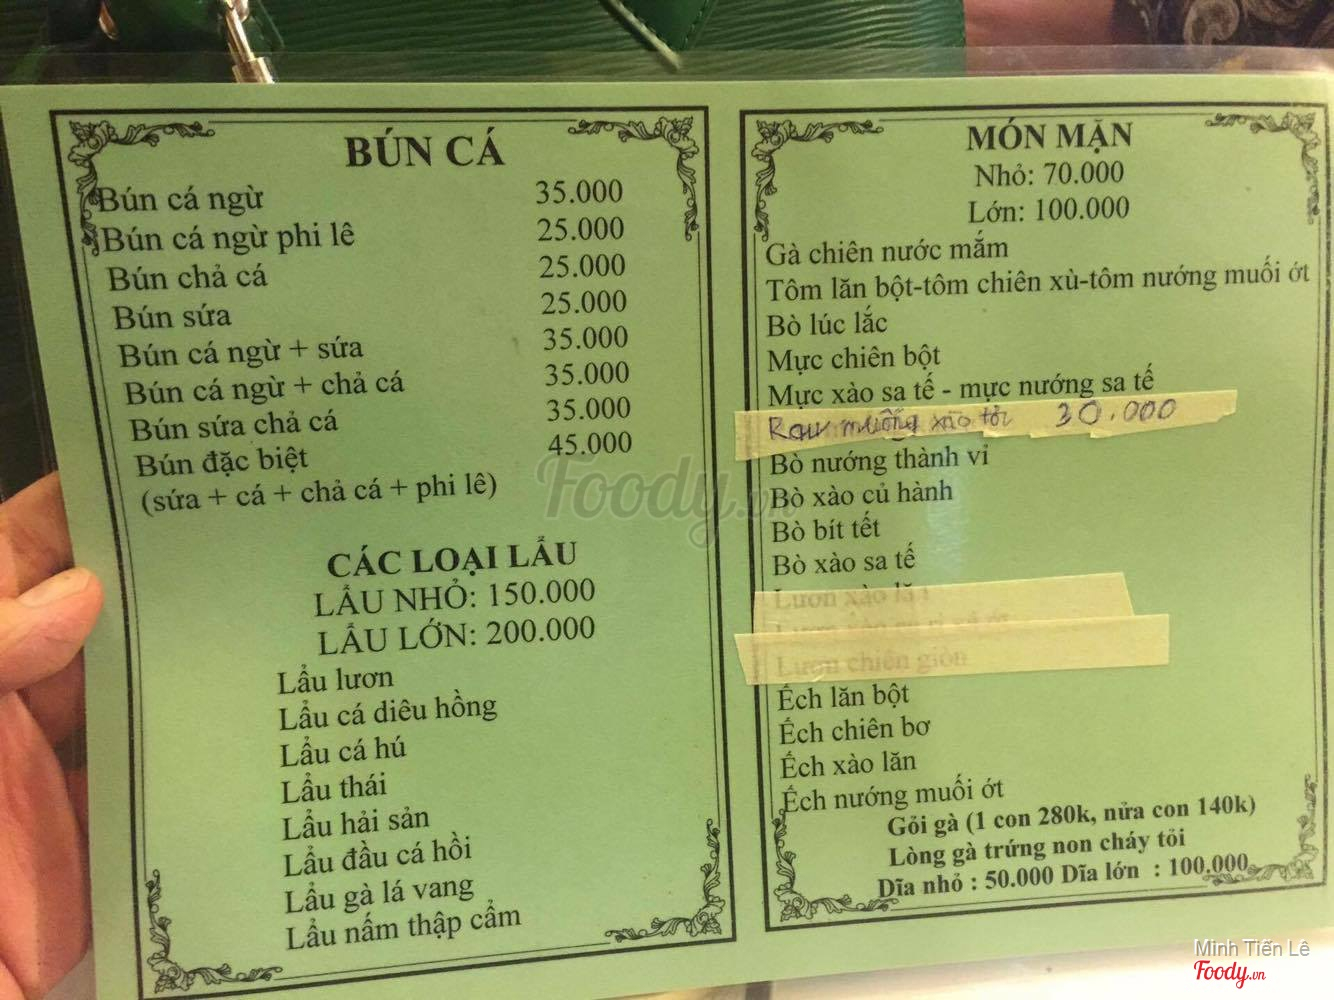 BÚN CÁ
Bún cá ngừ 35.000
Bún cá ngừ phi lê 25.000
Bún chả cá 25.000
Bún sứa 25.000
Bún cá ngừ + sứa 35.000
Bún cá ngừ + chả cá 35.000
Bún sứa chả cá 35.000
Bún đặc biệt 45.000
(sứa + cá + chả cá + phi lê)
CÁC LOẠI LẨU
LẨU NHỎ: 150.000
LẨU LỚN: 200.000
Lẩu lươn
Lẩu cá diêu hồng
Lẩu cá hú
Lẩu thái
Lẩu hải sản
Lẩu đầu cá hồi
Lẩu gà lá vang
Lẩu nấm thập cẩm
MÓN MẶN
Nhỏ: 70.000
Lớn: 100.000
Gà chiên nước mắm
Tôm lăn bột-tôm chiên xù-tôm nướng muối ớt
Bò lúc lắc
Mực chiên bột
Mực xào sa tế - mực nướng sa tế
Rau muống xào tỏi 30.000
Bò nướng thành vỉ
Bò xào củ hành
Bò bít tết
Bò xào sa tế
Lươn xào lăn
Lươn chiên giòn
Ếch lăn bột
Ếch chiên bơ
Ếch xào lăn
Ếch nướng muối ớt
Gỏi gà (1 con 280k, nửa con 140k)
Lòng gà trứng non cháy tỏi
Dĩa nhỏ : 50.000 Dĩa lớn : 100.000
Foody.vn
Minh Tiến Lê
Foody.vn